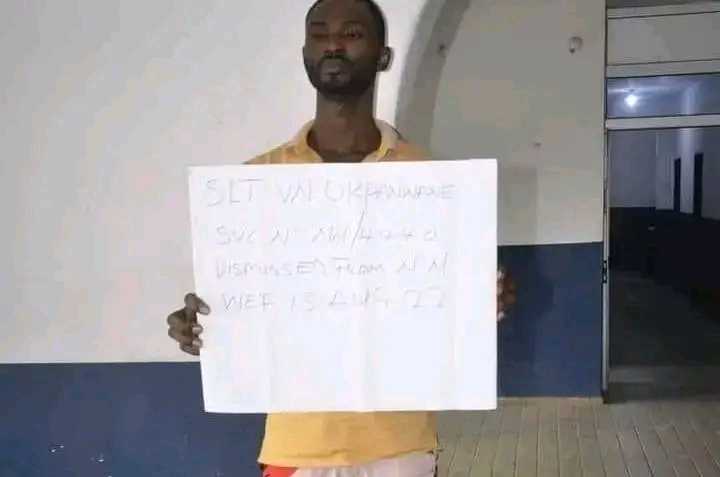 SLT VN UKPANWANE
SVC No NN/4440
DISMISSED FROM NN
WEF 15 AUG 22